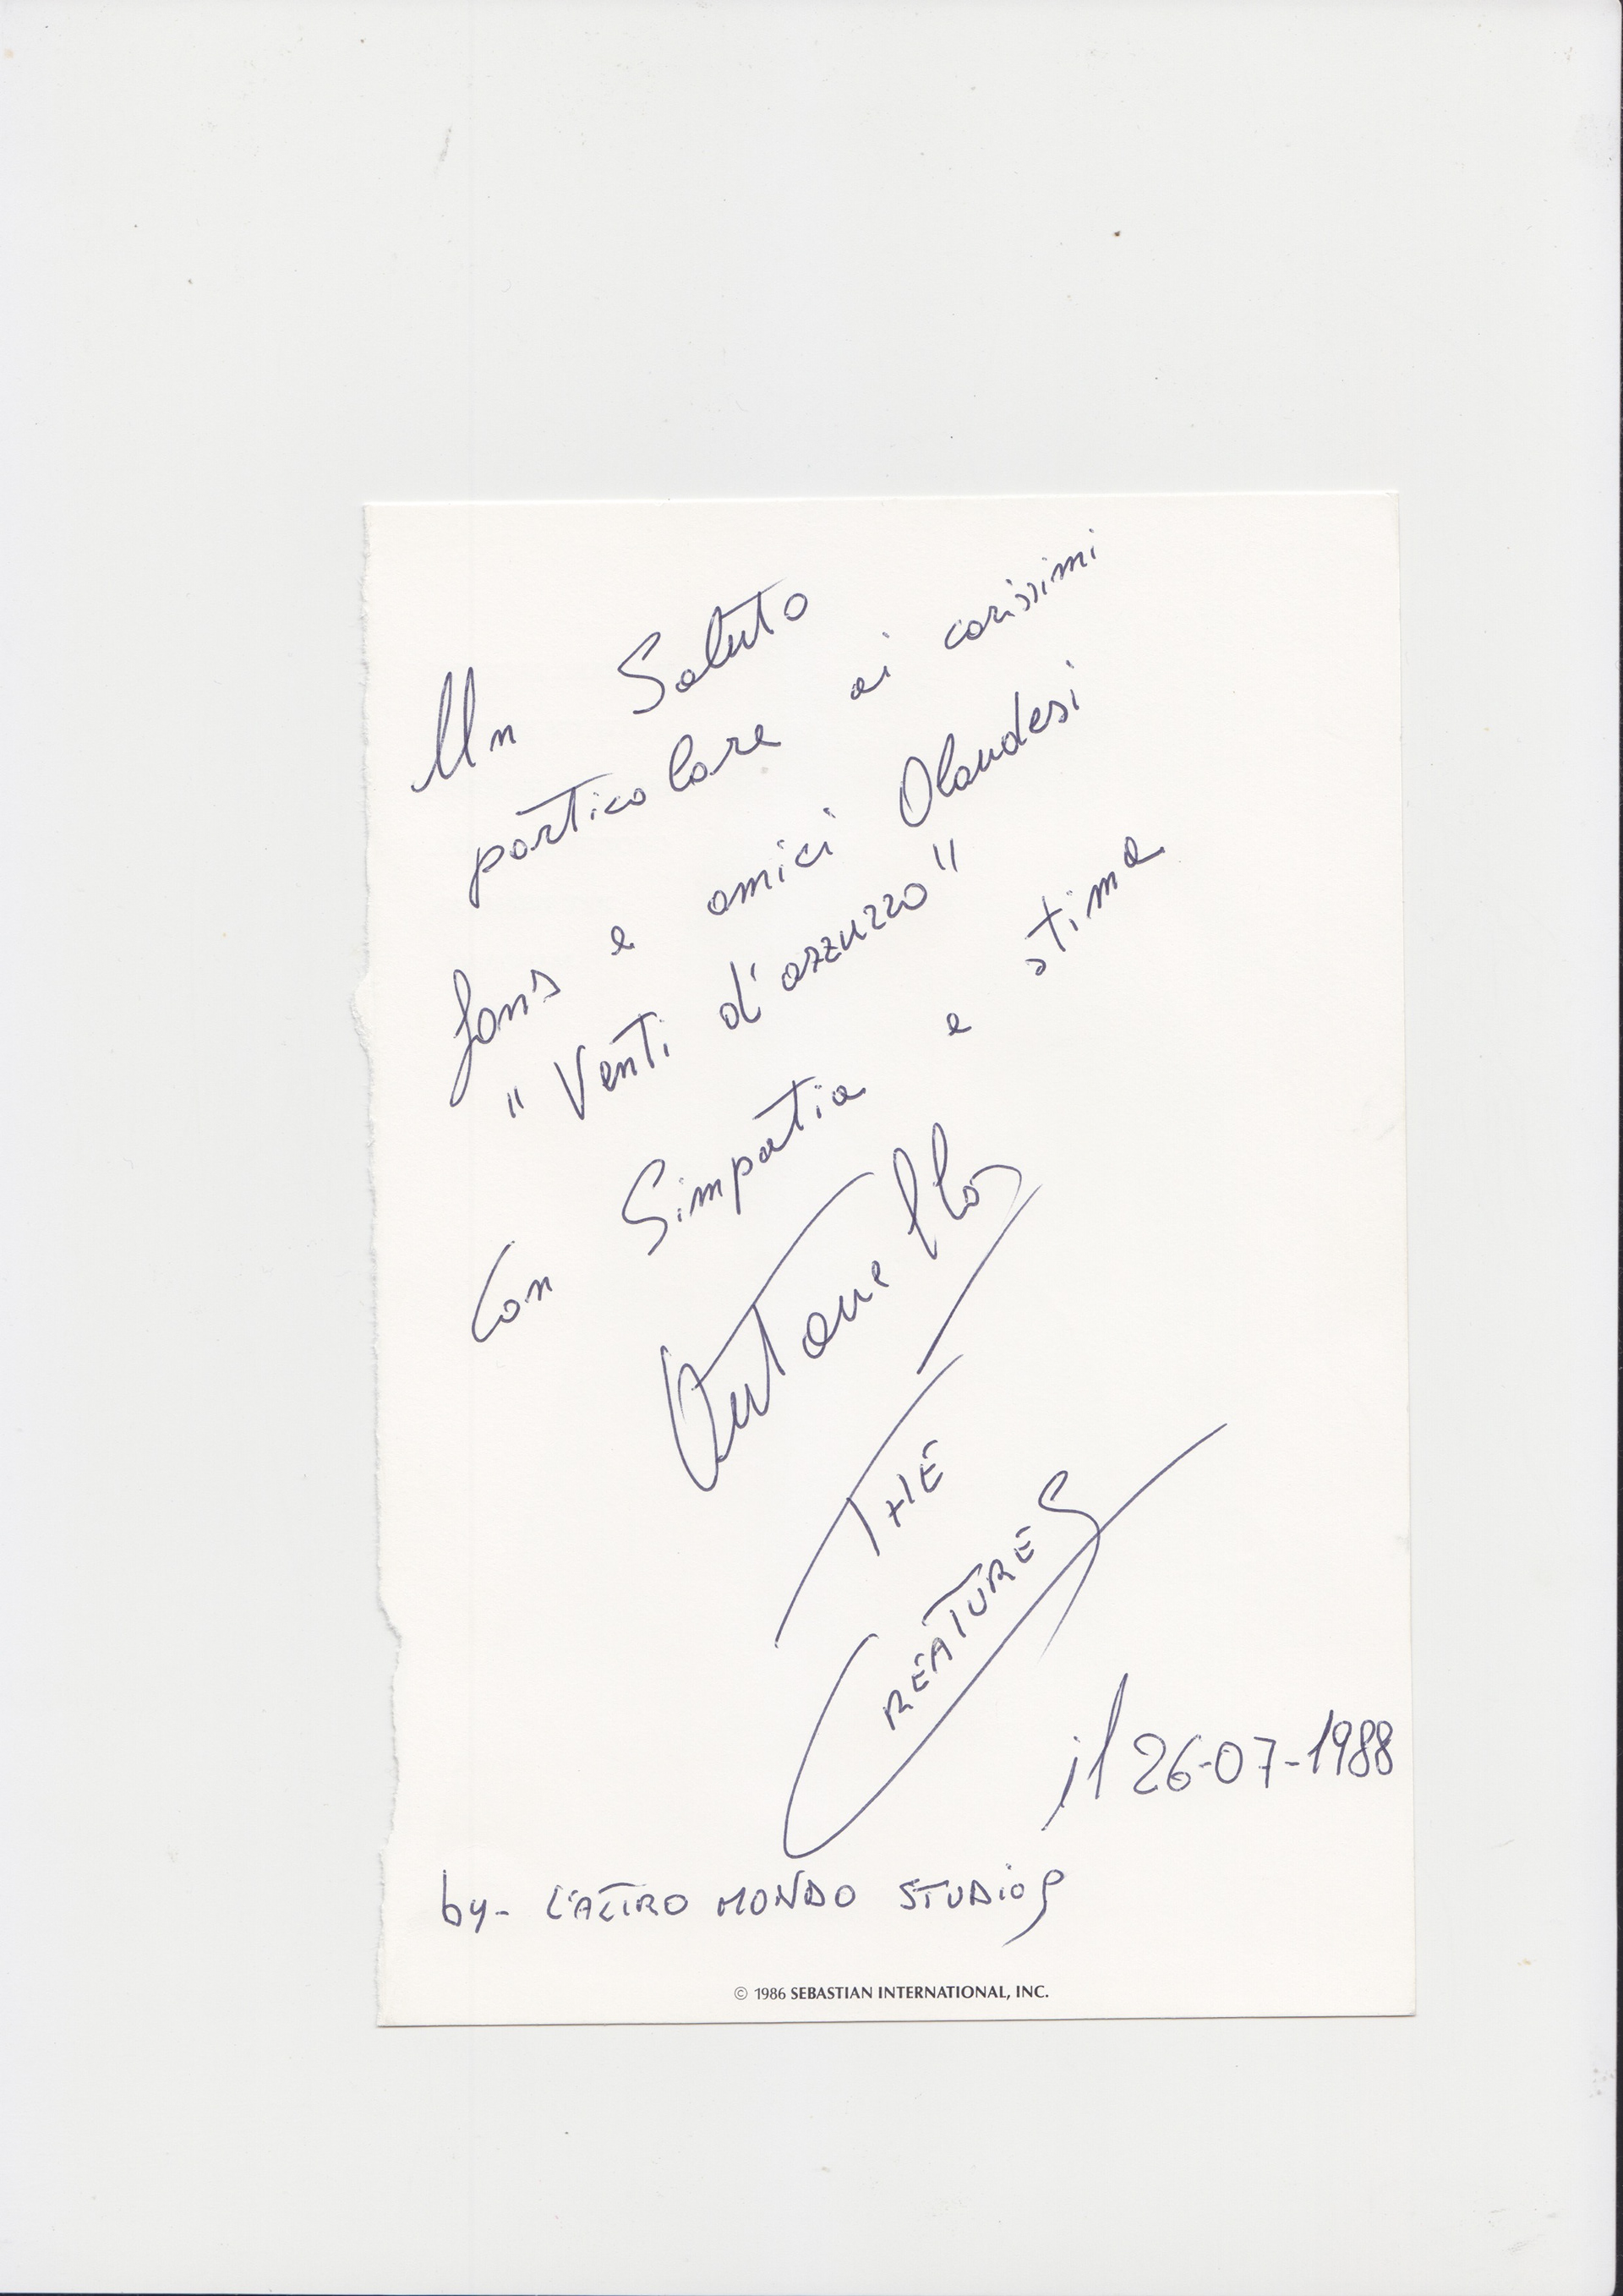 Un Saluto
particolare ai carissimi
fan's e amici Olandesi
"Venti d'azzurro"
Con Simpatia e stima
Antonello
THE
CREATURES
il 26-07-1988
by- L'ALTRO MONDO STUDIOS
© 1986 SEBASTIAN INTERNATIONAL, INC.